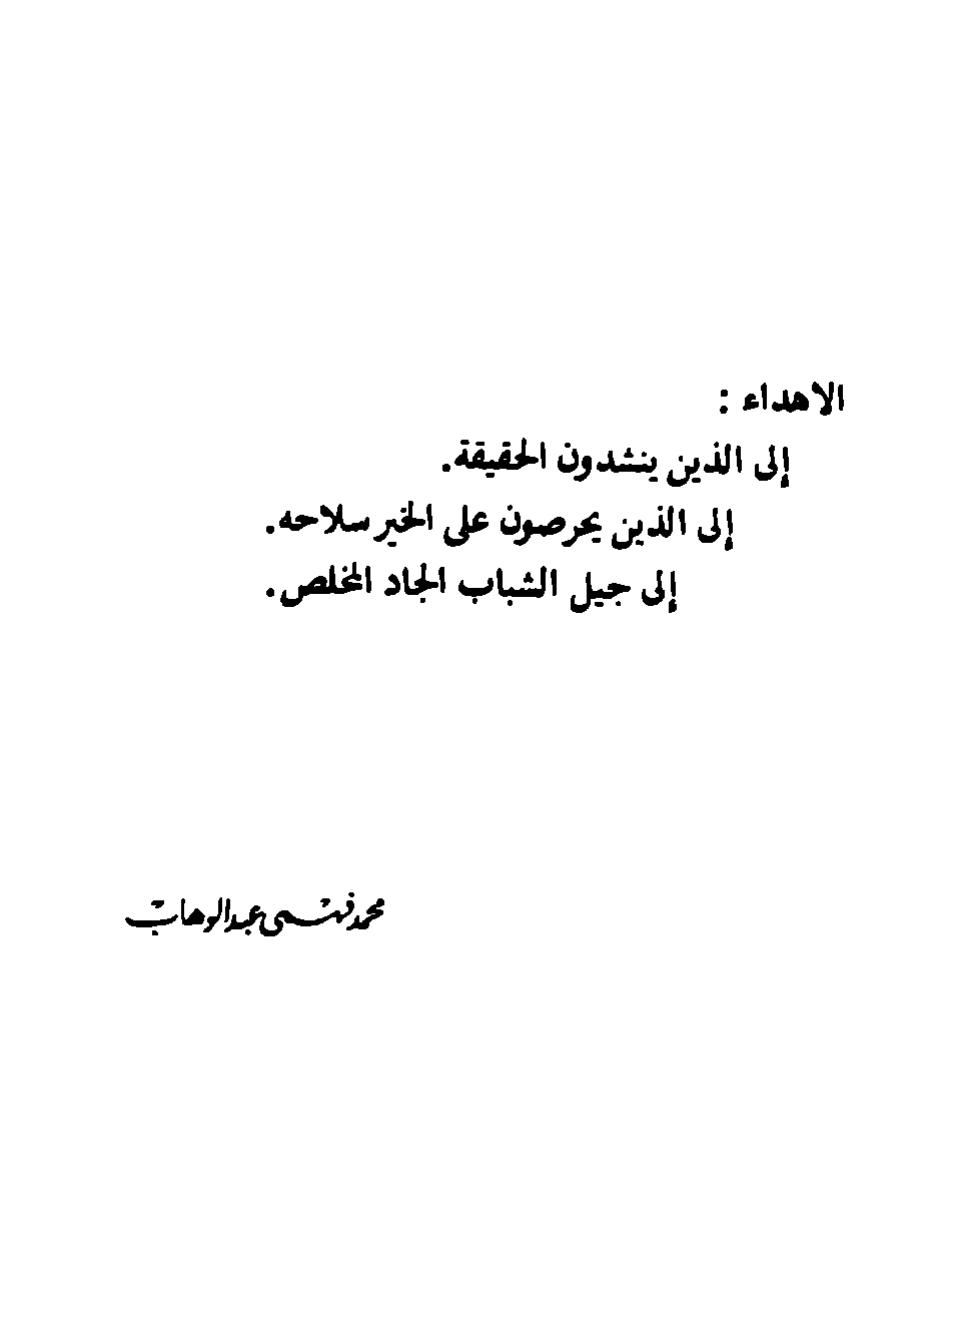 الاهداء :
إلى الذين ينشدون الحقيقة.
إلى الذين يحرصون على الخير سلاحه.
إلى جيل الشباب الجاد المخلص.
محمد فتحى عبد الوهاب